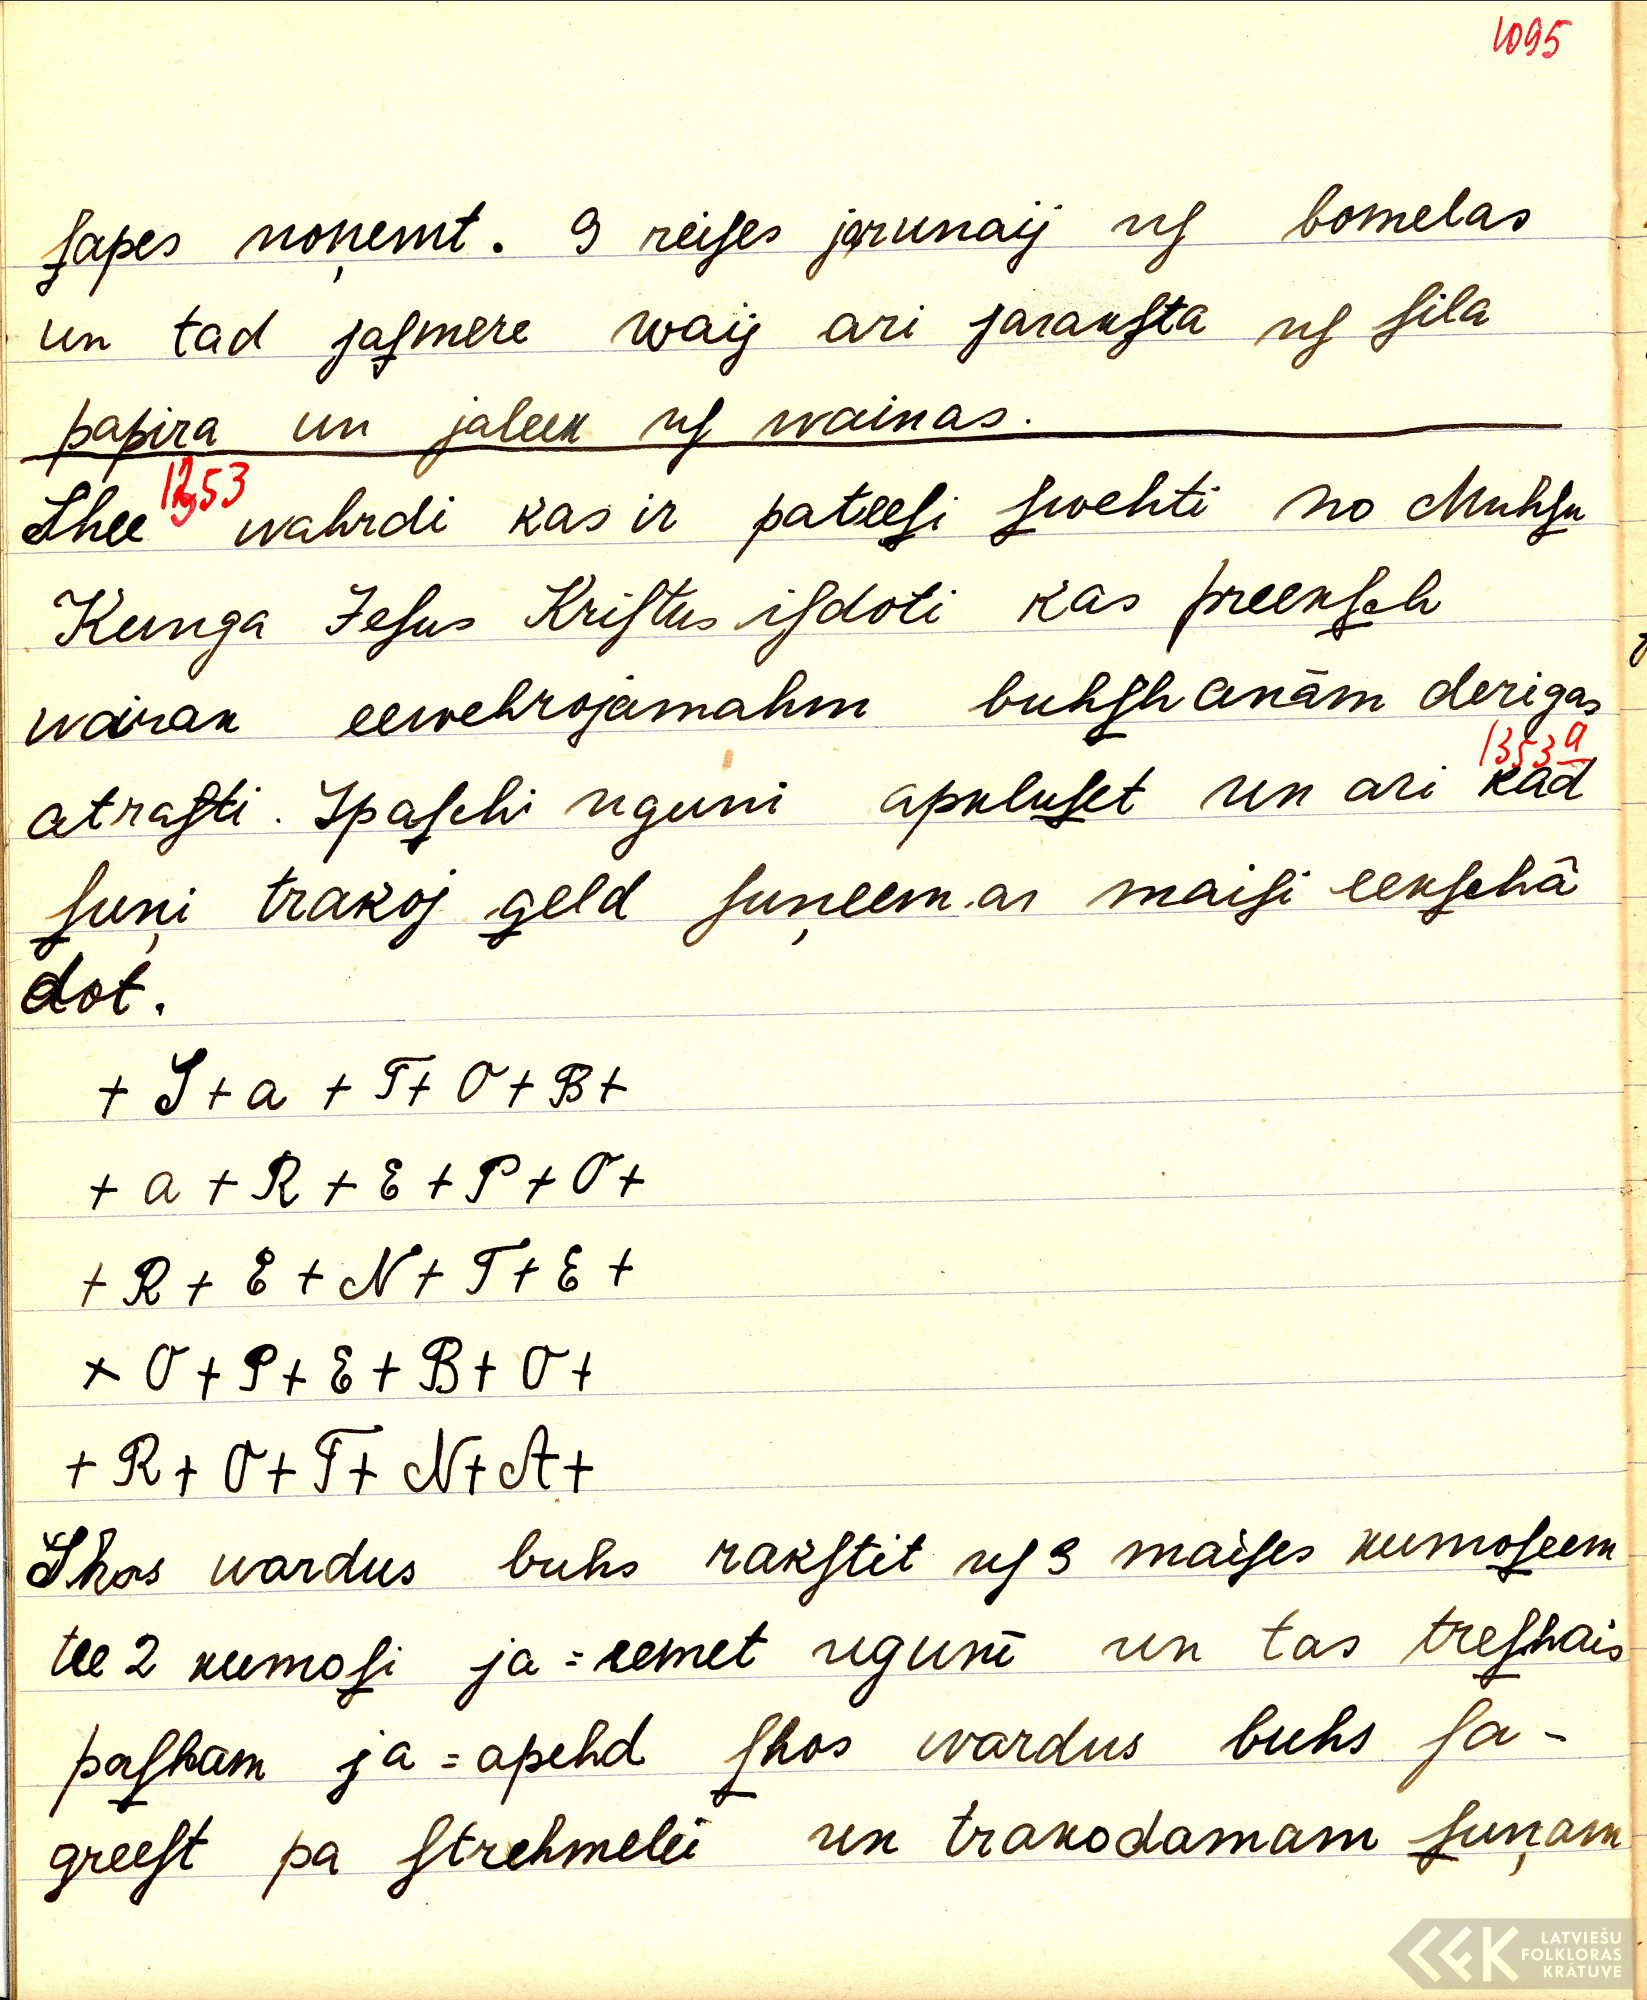 1095
ſapes noņemt. 9 reiſes jarunaij uſ bomelas
un tad jaſmere waij ari jarakſta uſ ſila
papira un jaleek uſ wainas.
1353
Shee wahrdi kas ir pateeſi ſwehti no Muhſu
Kunga Jeſus Kriſtus iſdoti kas preekſch
wairak eewehrojamahm buhſhanām derigas
1353a
atraſti. Ipaſchi uguni apkluſet un ari kad
ſuņi trakoj geld ſuņeem ar maiſi eekſchā
dot.
+ S + a + T + O + B +
+ a + R + E + P + O +
+ R + E + N + T + E +
+ O + P + E + B + O +
+ R + O + T + N + A +
Shos wardus buhs rakſtit uſ 3 maiſes kumoſeem
tee 2 kumoſi ja=eemet ugunī un tas treſhais
paſham ja=apehd ſhos wardus buhs ſa-
greeſt pa ſtrehmelei un trakodamam ſuņam
LATVIEŠU
FOLKLORAS
KRĀTUVE